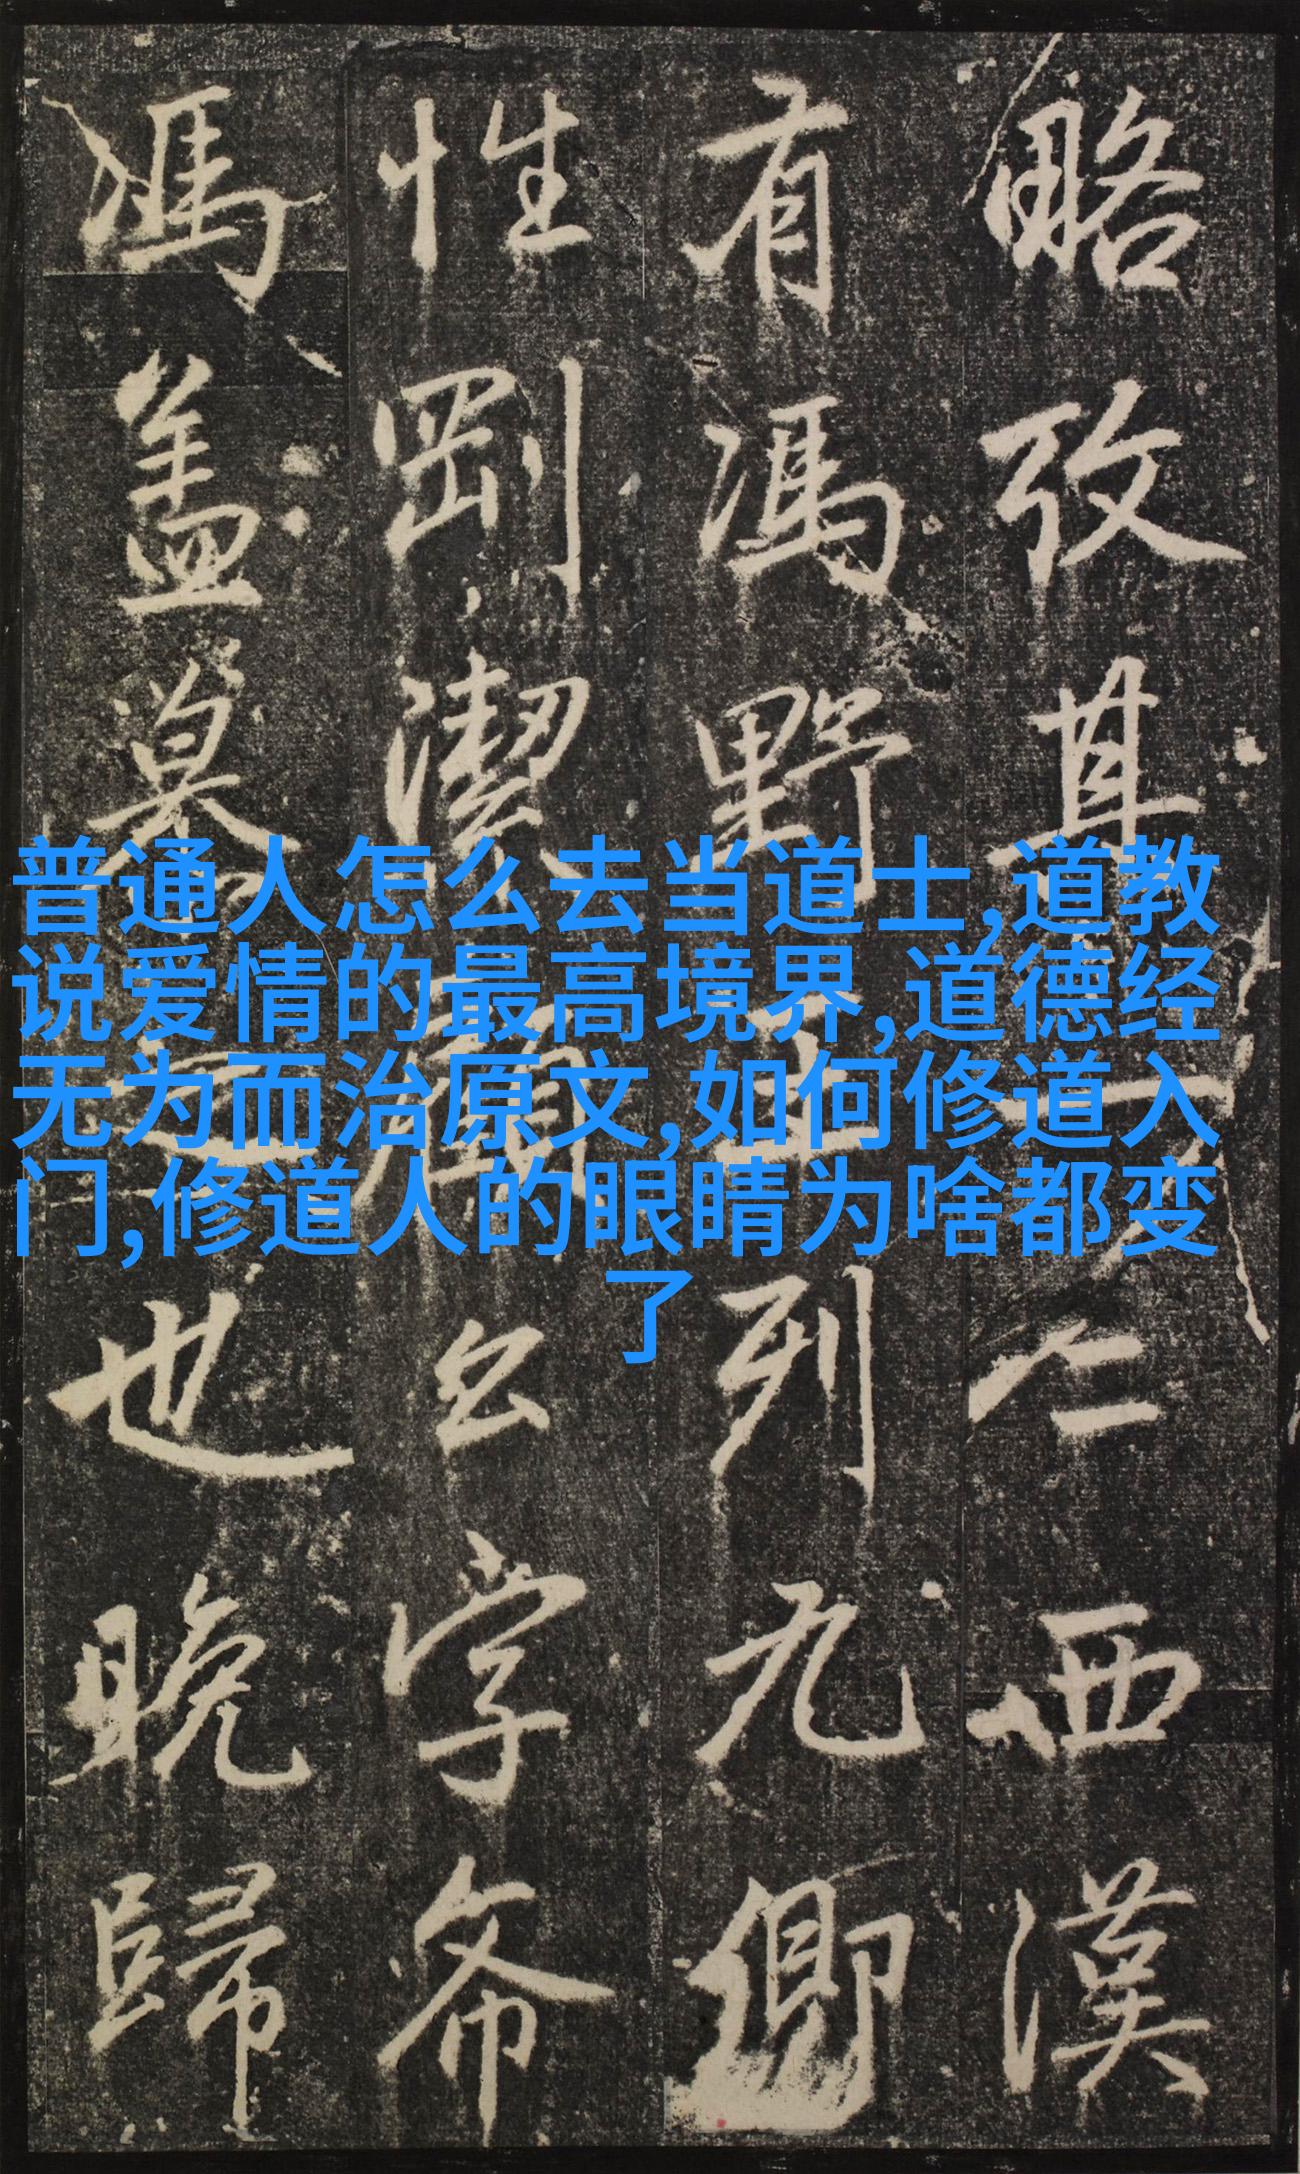 普通人怎么去当道士,道教
说爱情的最高境界,道德经
无为而治原文,如何修道入
门,修道人的眼睛为啥都变
了
略攷其西漢
有馮野王列九卿
性剛潔字
馮盖莫之也晚歸